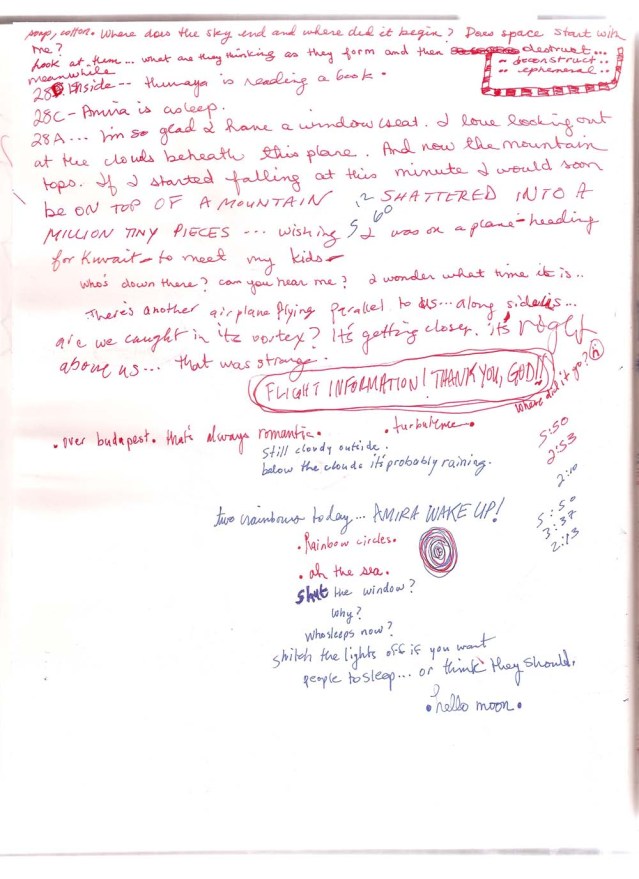 soap, cotton. Where does the sky end and where did it begin? Does space start with
me?
Look at them... what are they thinking as they form and then destruct...
.. deconstruct..
.. ephemeral..
meanwhile
28B Inside -- Thuraya is reading a book.
28C - Amira is asleep.
28A... I'm so glad I have a window seat. I love looking out
at the clouds beneath this plane. And now the mountain
tops. If I started falling at this minute I would soon
be ON TOP OF A MOUNTAIN SHATTERED INTO A
MILLION TINY PIECES ... wishing I was on a plane - heading
for Kuwait - to meet my kids -
Who's down there? can you hear me? I wonder what time it is..
There's another airplane flying parallel to us... along side us...
are we caught in its vortex? It's getting closer. it's right
above us... that was strange.
FLIGHT INFORMATION! THANK YOU, GOD!!
where did it go?
• over budapest. that's always romantic.
• turbulence •
still cloudy outside.
below the clouds it's probably raining.
5:50
2:53
2:10
two rainbows today... AMIRA WAKE UP!
5:50
3:37
2:13
• Rainbow circles.
• ah the sea.
shut the window?
why?
who sleeps now?
switch the lights off if you want
people to sleep... or think they should.
• hello moon •